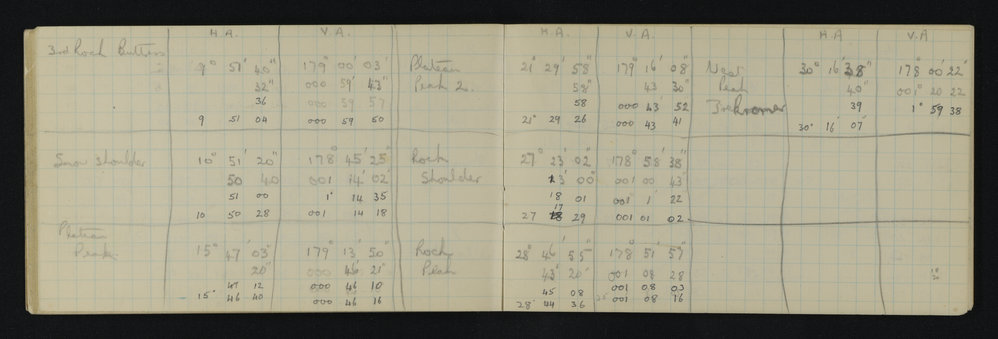 H.A. V.A. H.A. V.A. H.A V.A
3rd Rock Buttress 9° 51' 40" 179° 00' 03" Plateau 21° 29' 58" 179° 16' 08" Next 30° 16' 38" 178° 00' 22'
32" 000 59' 43" Peak 2. 58" 43 30" Peak 40" 001° 20 22
36 000 59 57 58 000 43 52 39 1° 59 38
9 51 04 000 59 50 21° 29 26 000 43 41 30° 16' 07'
Snow Shoulder 10° 51' 20" 178° 45' 25" Rock 27° 23' 02" 178° 58' 38"
50 40 001 14' 02' Shoulder 23' 00" 001 00 43
51 00 1° 14 35 18 01 001° 1' 22
10 50 28 001 14 18 27 17 29 001 01 02
Plateau
Peak 15° 47' 03" 179° 13' 50" Rock 28° 46' 55" 178° 51' 57"
20" 000 46' 21" Peak 43' 20' 001 08 28
47 12 000 46 10 45 08 001 08 03
15° 46 40 000 46 16 28° 44 36 001 08 16